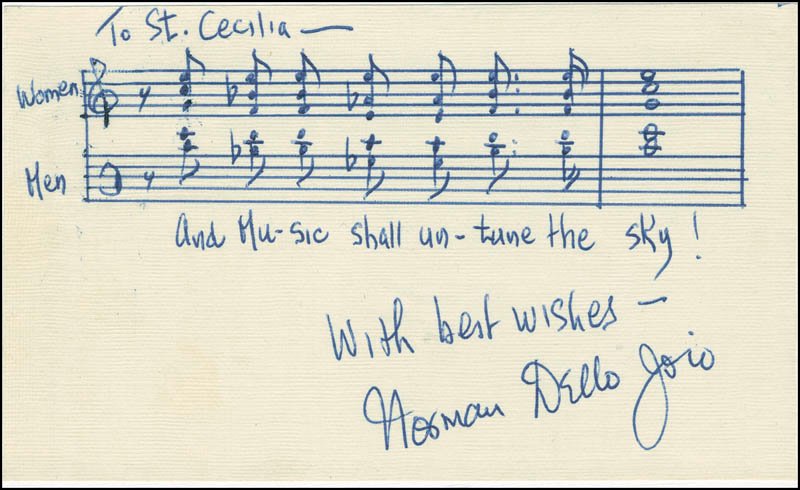 To St. Cecilia —
Women
Men
And Mu-sic shall un-tune the sky!
With best wishes —
Norman Dello Joio